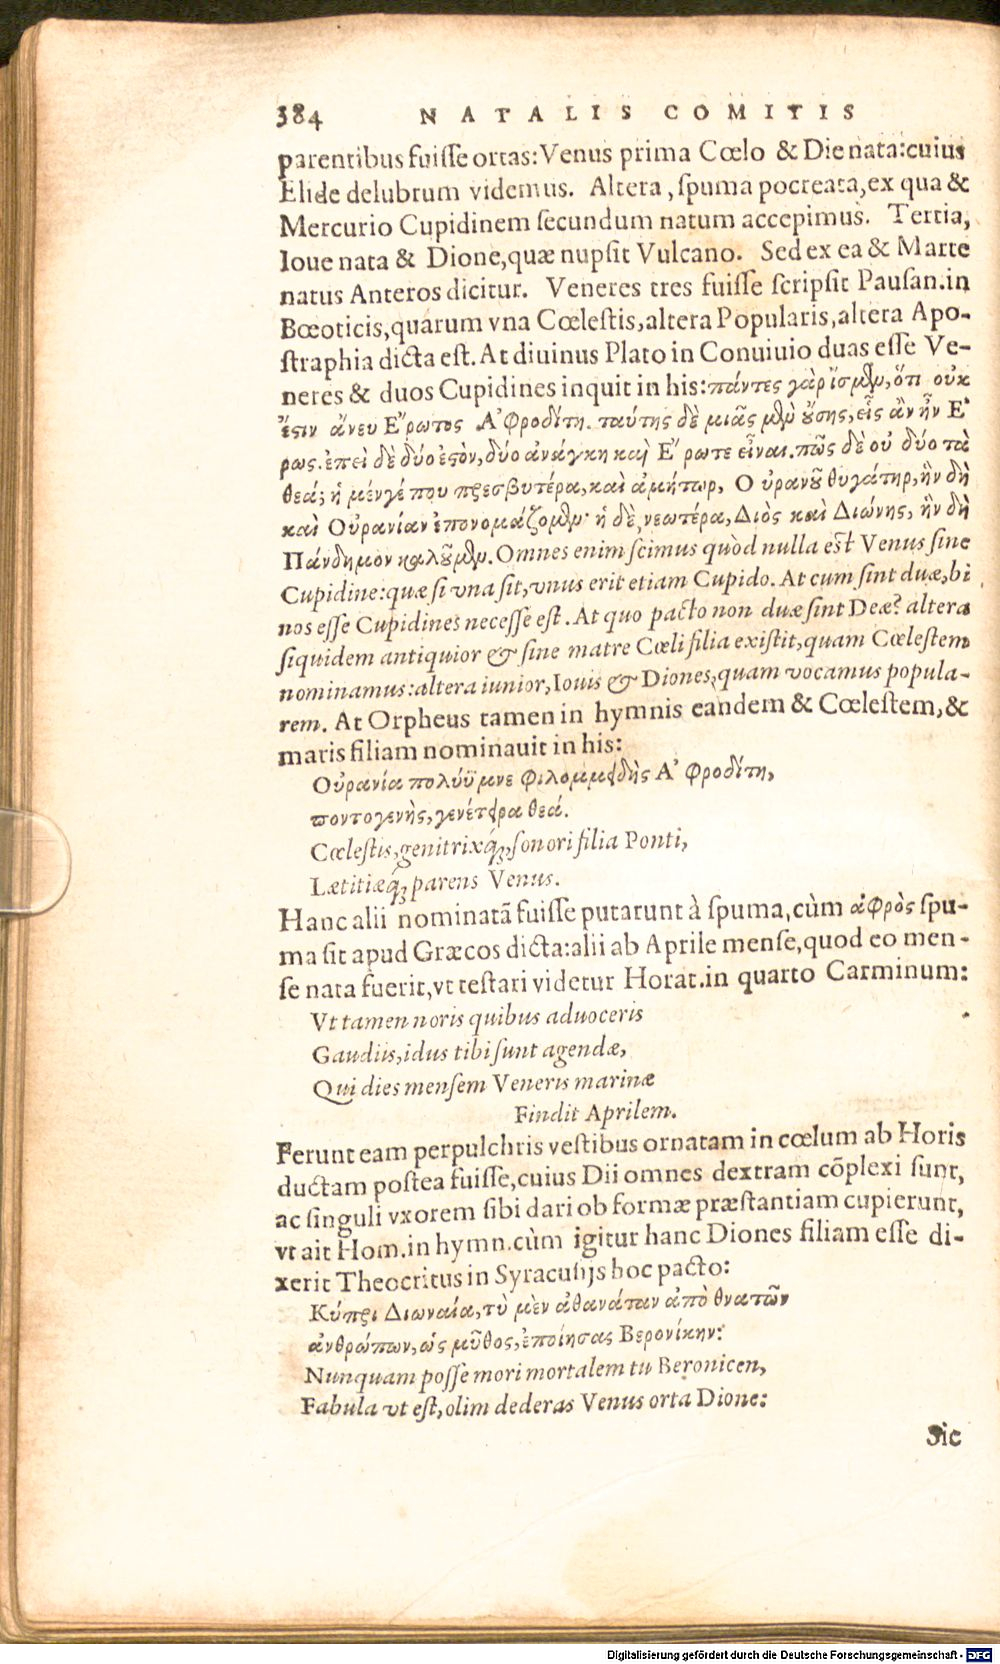 384 NATALIS COMITIS
parentibus fuiſſe ortas: Venus prima Cœlo & Die nata: cuius
Elide delubrum videmus. Altera, ſpuma pocreata, ex qua &
Mercurio Cupidinem ſecundum natum accepimus. Tertia,
Ioue nata & Dione, quæ nupſit Vulcano. Sed ex ea & Marte
natus Anteros dicitur. Veneres tres fuiſſe ſcripſit Pauſan. in
Bœoticis, quarum vna Cœleſtis, altera Popularis, altera Apo-
ſtraphia dicta eſt. At diuinus Plato in Conuiuio duas eſſe Ve-
neres & duos Cupidines inquit in his: πάντες γὰρ ἴσμεν, ὅτι οὐκ
ἔστιν ἄνευ Ἔρωτος Ἀφροδίτη. ταύτης δὲ μιᾶς μὲν οὔσης, εἷς ἂν ἦν Ἔ
ρως. ἐπεὶ δὲ δύο ἐστὸν, δύο ἀνάγκη καὶ Ἔρωτε εἶναι. πῶς δὲ οὐ δύο τὰ
θεά; ἡ μένγέ που πρεσβυτέρα, καὶ ἀμήτωρ, Οὐρανοῦ θυγάτηρ, ἣν δὴ
καὶ Οὐρανίαν ἐπονομάζομεν· ἡ δὲ νεωτέρα, Διὸς καὶ Διώνης, ἣν δὴ
Πάνδημον καλοῦμεν. Omnes enim ſcimus quòd nulla eſt Venus ſine
Cupidine: quæ ſi vna ſit, vnus erit etiam Cupido. At cum ſint duæ, bi
nos eſſe Cupidines neceſſe eſt. At quo pacto non duæ ſint Deæ? altera
ſiquidem antiquior & ſine matre Cœli filia exiſtit, quam Cœleſtem
nominamus: altera iunior, Iouis & Diones, quam vocamus popula-
rem. At Orpheus tamen in hymnis eandem & Cœleſtem, &
maris filiam nominauit in his:
Οὐρανία πολύϋμνε φιλομμειδὴς Ἀφροδίτη,
ποντογενὴς, γενέτειρα θεά.
Cœleſtis, genitrixq́;, ſonori filia Ponti,
Lætitiæq́; parens Venus.
Hanc alii nominatã fuiſſe putarunt à ſpuma, cùm ἀφρὸς ſpu-
ma ſit apud Græcos dicta: alii ab Aprile menſe, quod eo men-
ſe nata fuerit, vt teſtari videtur Horat. in quarto Carminum:
Vt tamen noris quibus aduoceris
Gaudiis, idus tibi ſunt agendæ,
Qui dies menſem Veneris marinæ
Findit Aprilem.
Ferunt eam perpulchris veſtibus ornatam in cœlum ab Horis
ductam poſtea fuiſſe, cuius Dii omnes dextram cõplexi ſunt,
ac ſinguli vxorem ſibi dari ob formæ præſtantiam cupierunt,
vt ait Hom. in hymn. cùm igitur hanc Diones filiam eſſe di-
xerit Theocritus in Syracuſijs hoc pacto:
Κύπρι Διωναία, τὺ μὲν ἀθανάταν ἀπὸ θνατῶν
ἀνθρώπων, ὡς μῦθος, ἐποίησας Βερονίκην:
Nunquam poſſe mori mortalem tu Beronicen,
Fabula vt eſt, olim dederas Venus orta Dione:
Sic
Digitalisierung gefördert durch die Deutsche Forschungsgemeinschaft - DFG